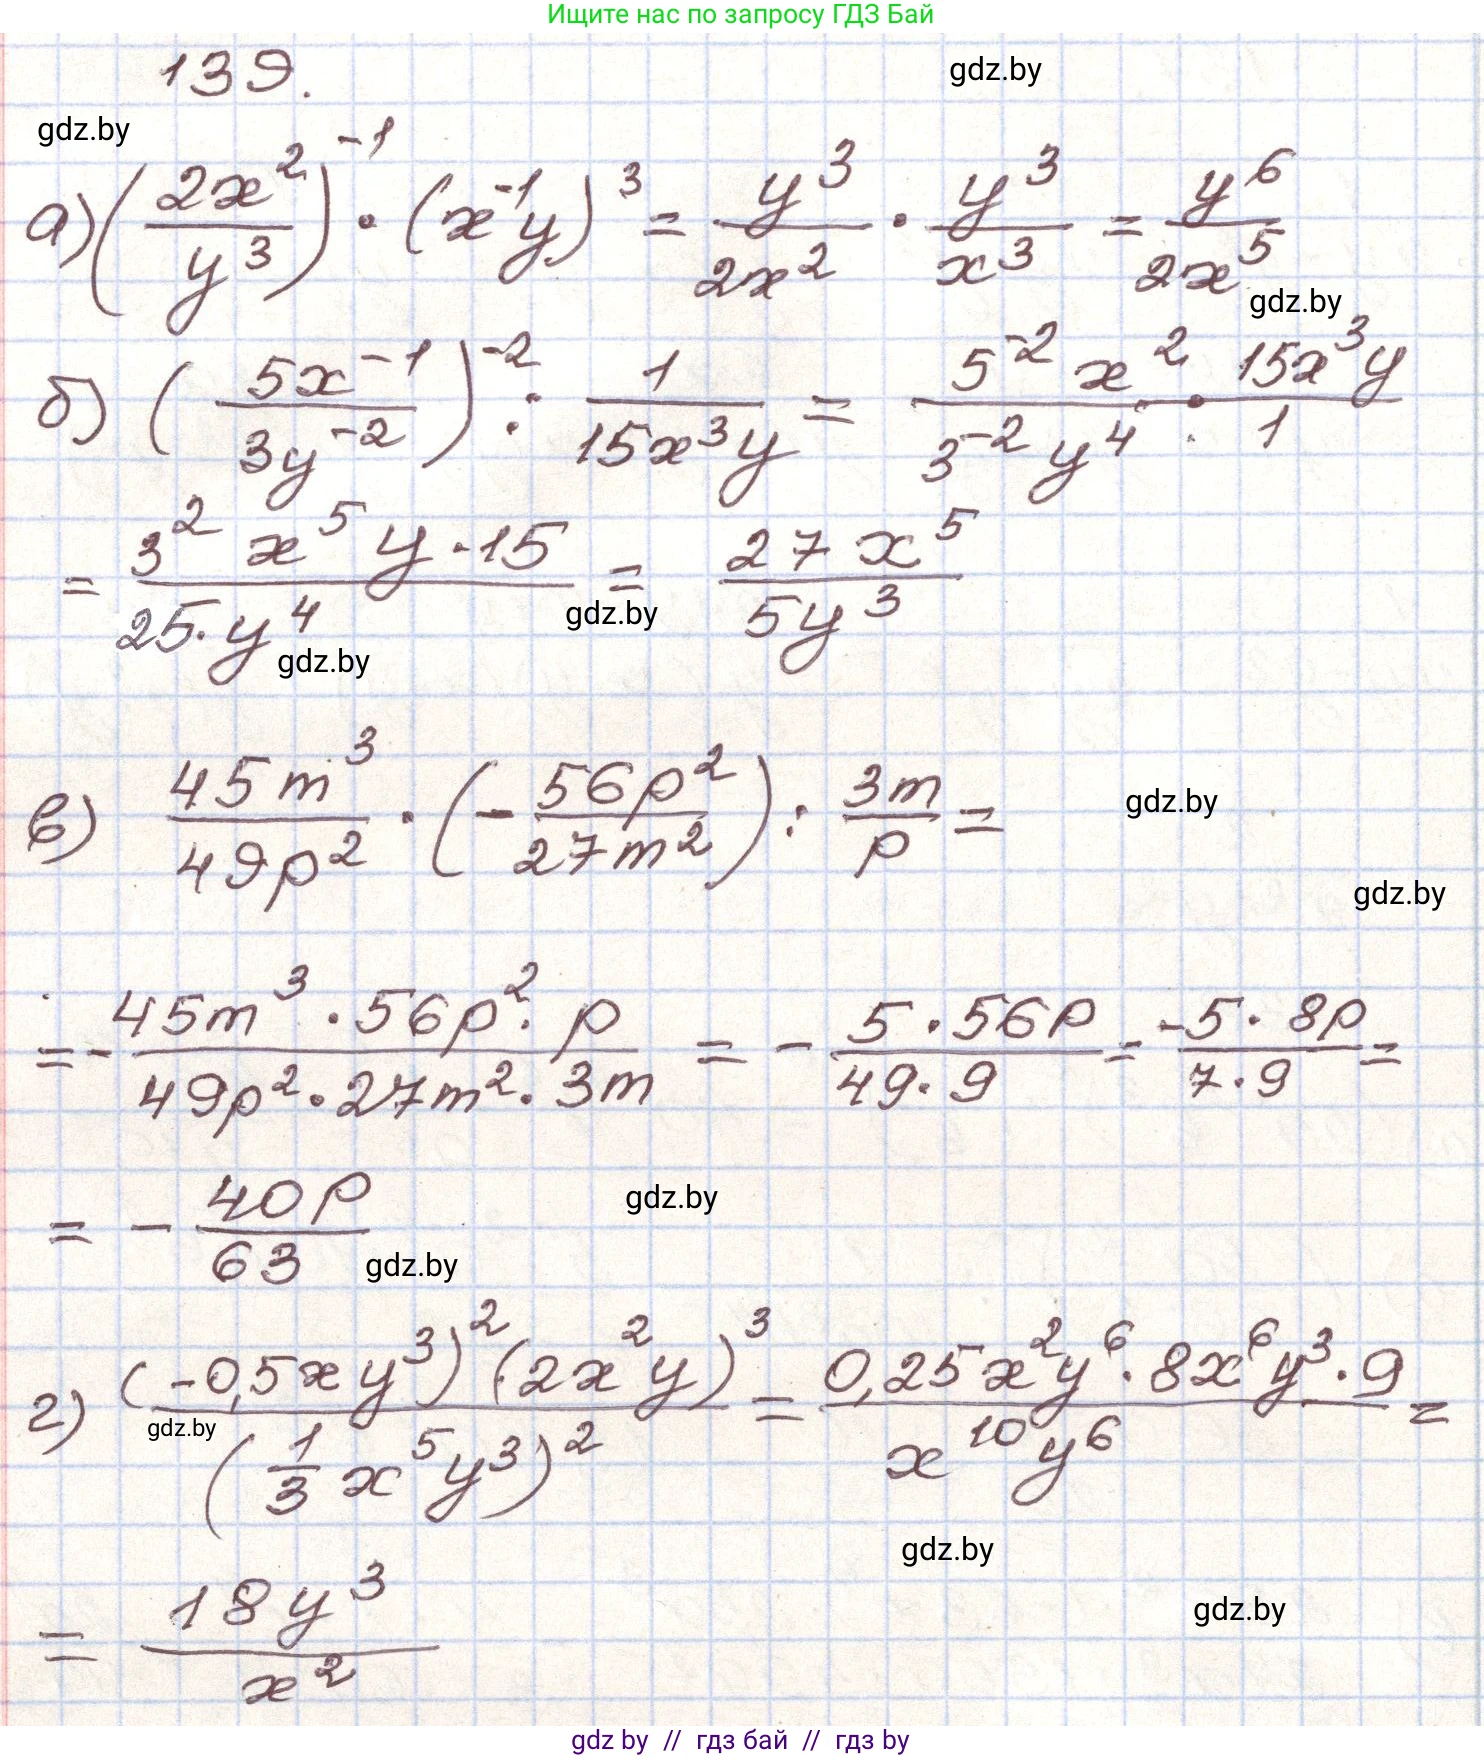 Ищите нас по запросу ГДЗ Бай
139.
gdz.by
gdz.by
а) (2x²/y³)⁻¹ · (x⁻¹y)³ = y³/2x² · y³/x³ = y⁶/2x⁵
gdz.by
б) (5x⁻¹/3y⁻²)⁻² : 1/15x³y = 5⁻²x²/3⁻²y⁴ · 15x³y/1
= 3²x⁵y·15/25·y⁴ = 27x⁵/5y³
gdz.by
gdz.by
в) 45m³/49p² · (-56p²/27m²) : 3m/p =
gdz.by
gdz.by
= - 45m³·56p²·p/49p²·27m²·3m = - 5·56p/49·9 = -5·8p/7·9 =
= - 40p/63
gdz.by
gdz.by
г) (-0,5xy³)²(2x²y)³/(1/3 x⁵y³)² = 0,25x²y⁶·8x⁶y³·9/x¹⁰y⁶ =
gdz.by
gdz.by
= 18y³/x²
gdz.by
gdz by // гдз бай // гдз by